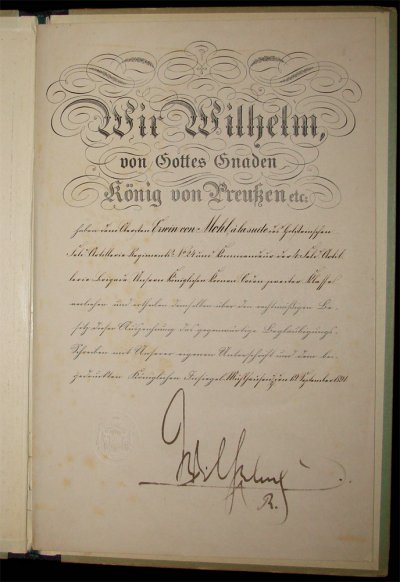 Wir Wilhelm,
von Gottes Gnaden
König von Preußen etc.
haben dem Obersten Erwin von Mohl à la suite des Holsteinschen
Feld Artillerie Regiments № 24 und Kommandeur der 4. Feld Artil
lerie Brigade Unseren Königlichen Kronen Orden zweiter Klasse
verliehen und ertheilen demselben über den rechtmäßigen Be-
sitz dieser Auszeichnung das gegenwärtige Beglaubigungs-
Schreiben mit Unserer eigenen Unterschrift und dem bei-
gedruckten Königlichen Insiegel. September 1891
Wilhelm
R.